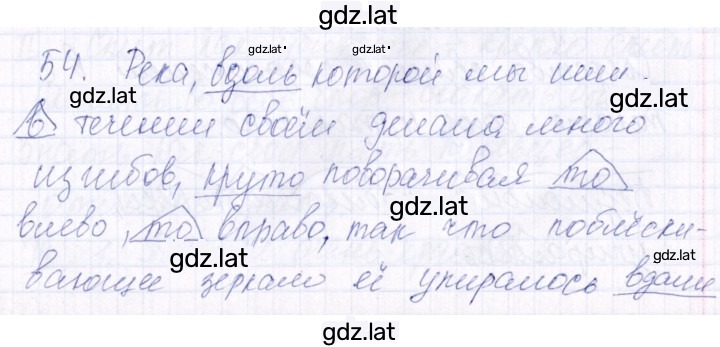 gdz.lat
54. Река, вдоль которой мы шли.
gdz.lat
gdz.lat
gdz.lat
gdz.lat
В течении своём делала много
gdz.lat
изгибов, круто поворачивая то
gdz.lat
влево, то вправо, так что поблёски-
gdz.lat
gdz.lat
вающее зеркало её упиралось вдали
gdz.lat